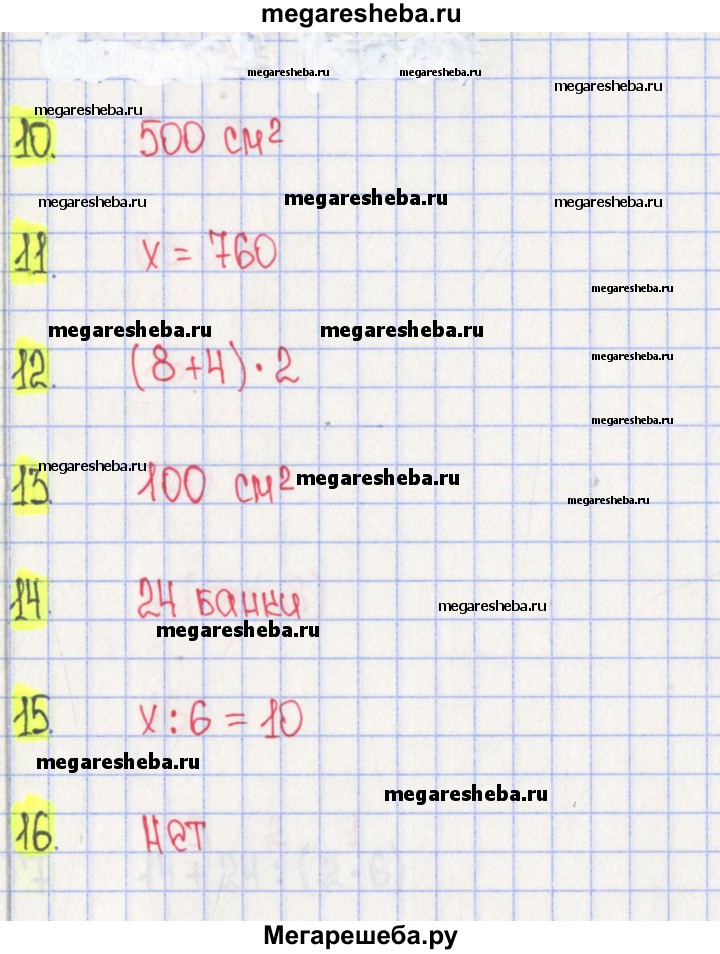 megaresheba.ru
megaresheba.ru megaresheba.ru
megaresheba.ru
megaresheba.ru
10. 500 см²
megaresheba.ru megaresheba.ru megaresheba.ru
11. x = 760
megaresheba.ru
megaresheba.ru megaresheba.ru
12. (8+4)·2
megaresheba.ru
megaresheba.ru
megaresheba.ru
13. 100 см² megaresheba.ru
megaresheba.ru
14. 24 банки
megaresheba.ru
megaresheba.ru
15. x : 6 = 10
megaresheba.ru
megaresheba.ru
16. нет
Мегарешеба.ру